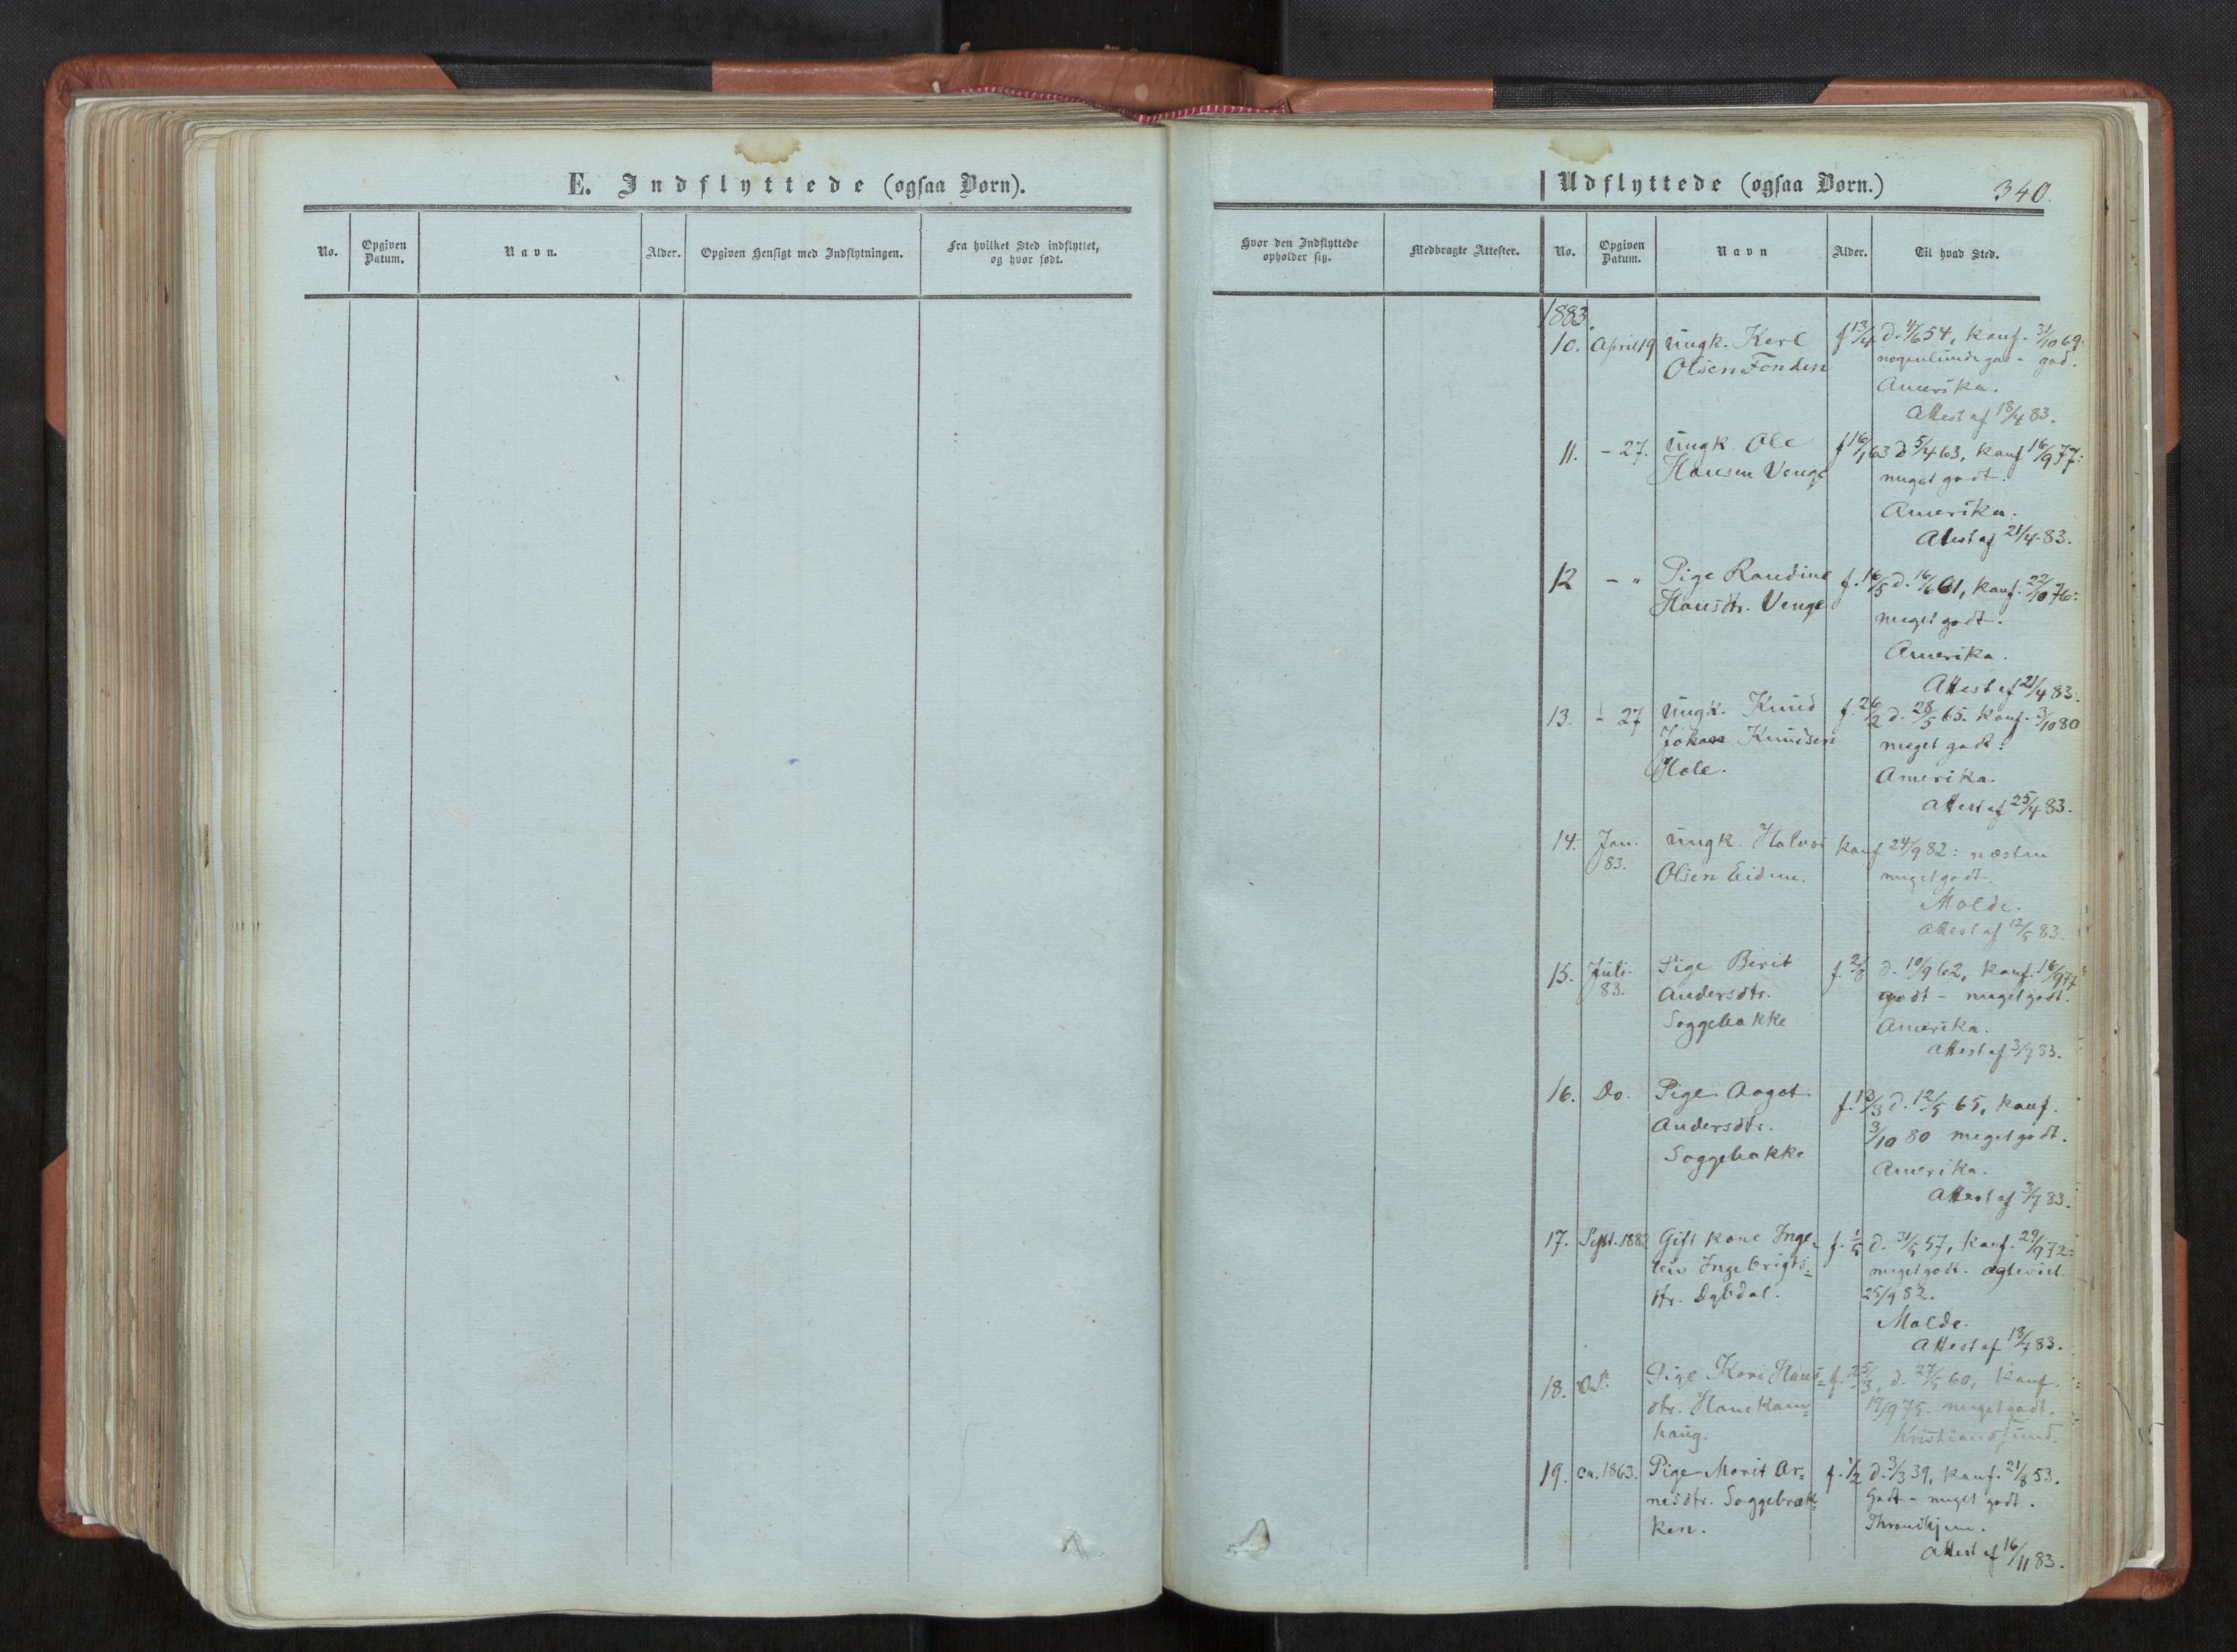 E. Indflyttede (ogsaa Børn).
No.
Opgiven
Datum.
Navn.
Alder.
Opgiven Hensigt med Indflytningen.
Fra hvilket Sted indflyttet,
og hvor født.
Udflyttede (ogsaa Børn.)
340.
Hvor den Indflyttede
opholder sig.
Medbragte Attester.
No.
Opgiven
Datum.
Navn
Alder.
Til hvad Sted.
1883.
10. April 19 Ungk. Karl f 13/4 d. 4/6 54, konf. 31/10 69:
Olsen Fonden nogenlunde god - god.
Amerika.
Attest af 18/4 83.
11. - 27. Ungk. Ole f 16/1 63 d 5/4 63, konf 16/9 77:
Hansen Venge meget godt.
Amerika.
Attest af 21/4 83.
12 - " Pige Randine f. 16/5 d. 16/6 61, konf. 22/10 76:
Hansdtr. Venge meget godt.
Amerika.
Attest af 21/4 83.
13. - 27 Ungk. Knud f. 26/2 d. 28/5 65. konf. 3/10 80
Johan Knudsen meget godt.
Hole. Amerika.
Attest af 25/4 83.
14. Jan. Ungk. Halvor konf 24/9 82: næsten
83. Olsen Eidem. meget godt.
Molde.
Attest af 12/5 83.
15. Juli. Pige Berit f. 2/8 d. 10/9 62, konf. 16/9 77
83. Andersdtr. godt - meget godt.
Soggebakke Amerika.
Attest af 3/7 83.
16. Do. Pige Aagot f. 13/3 d. 12/5 65, konf.
Andersdtr. 3/10 80 meget godt.
Soggebakke Amerika.
Attest af 3/7 83.
17. Sept. 1882 Gift kone Inge- f. 1/5 d. 31/5 57, konf. 29/9 72:
leiv Ingebrigts- meget godt. ægteviet
dtr. Dybdal. 25/9 82.
Molde.
Attest af 18/7 83.
18. Pige Kari Hans- f. 25/3, d. 27/5 60, konf.
dtr. Hanekam- 19/9 75. meget godt.
haug. Kristianssund.
19. ca. 1863. Pige Marit Ar- f. 1/2 d. 3/3 39, konf. 21/8 53.
nesdtr. Soggebrek- Godt - meget godt.
ken. Throndhjem.
Attest af 16/11 83.